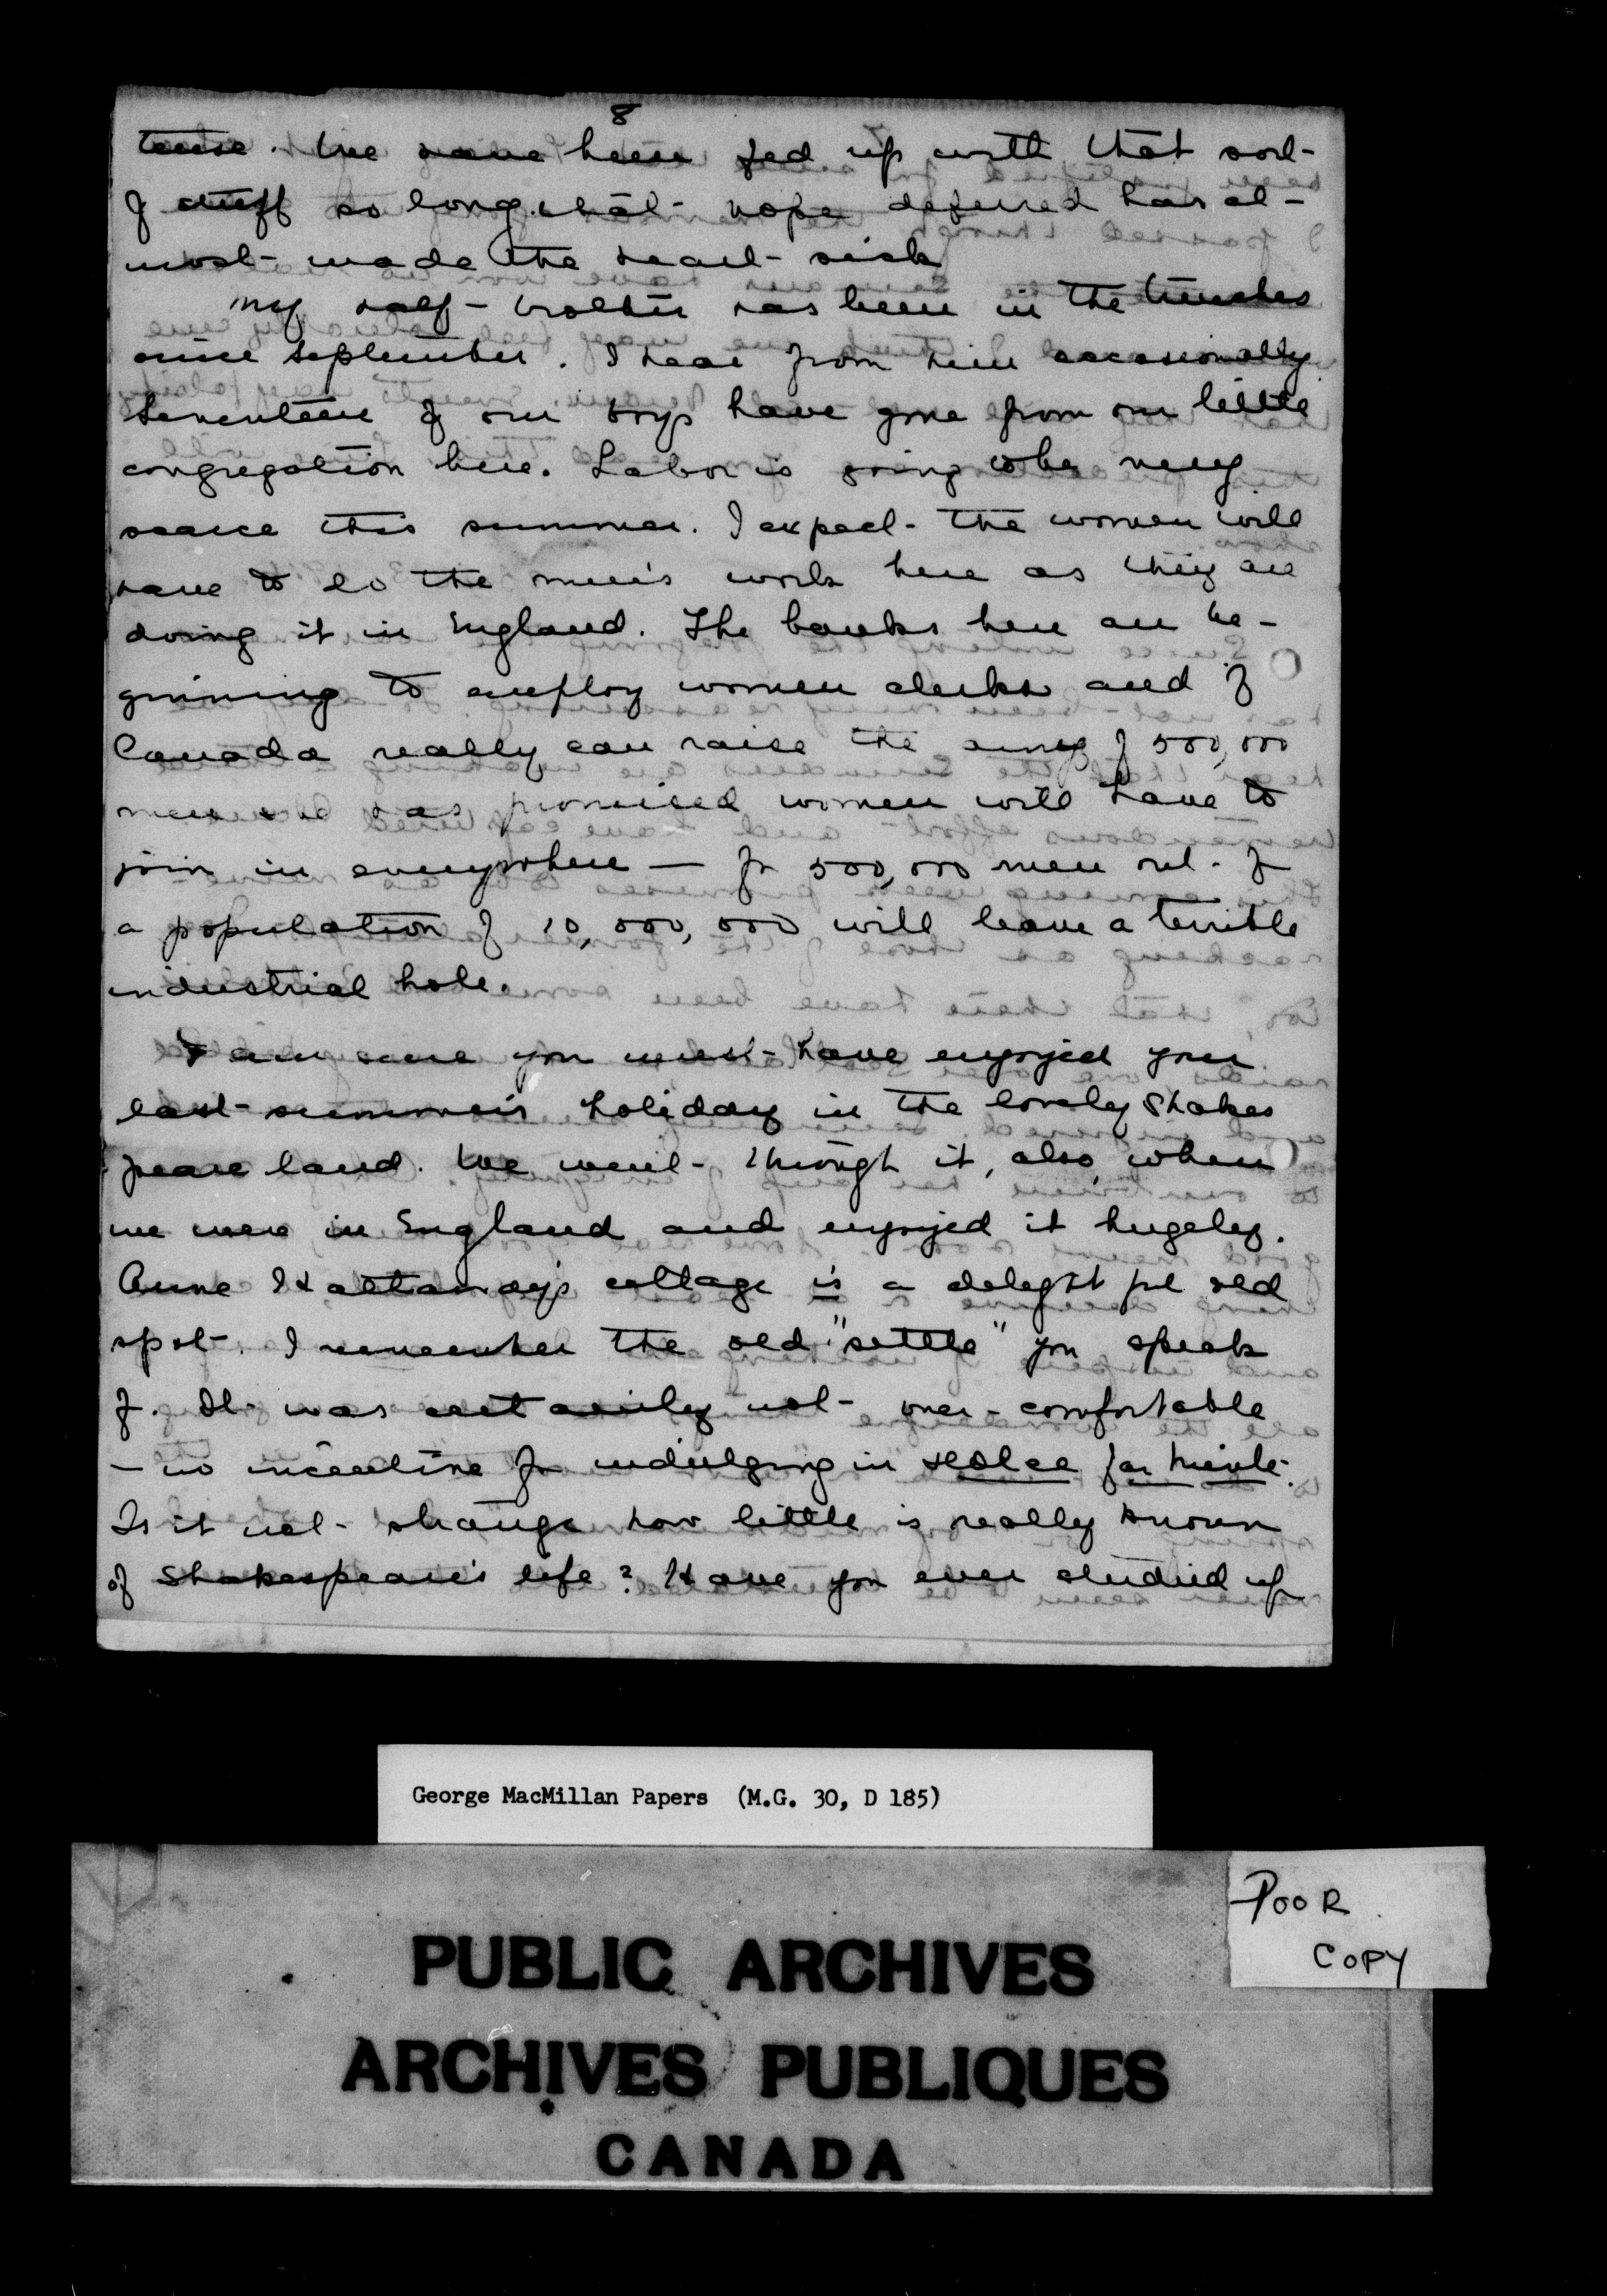 8
tense. We have been fed up with that sort
of stuff so long that hope deferred has al-
most made the heart sick
My half-brother has been in the trenches
since September. I hear from him occasionally
Seventeen of our boys have gone from our little
congregation here. Labor is going to be very
scarce this summer. I expect the women will
have to do the men's work here as they are
doing it in England. The banks here are be-
ginning to employ women clerks and if
Canada really can raise the army of 500,000
men she has promised women will have to
join in everywhere — for 500,000 men out of
a population of 10,000,000 will leave a terrible
industrial hole.
I am sure you must have enjoyed your
last summer's holiday in the lovely Shakes
peare land. We went through it, also, when
we were in England and enjoyed it hugely.
Anne Hathaway's cottage is a delightful old
spot. I remember the old "settle" you speak
of. It was certainly not over-comfortable
— no incentive for indulging in dolce far niente.
Is it not strange how little is really known
of Shakespeare's life? Have you ever studied up
George MacMillan Papers (M.G. 30, D 185)
POOR
COPY
PUBLIC ARCHIVES
ARCHIVES PUBLIQUES
CANADA